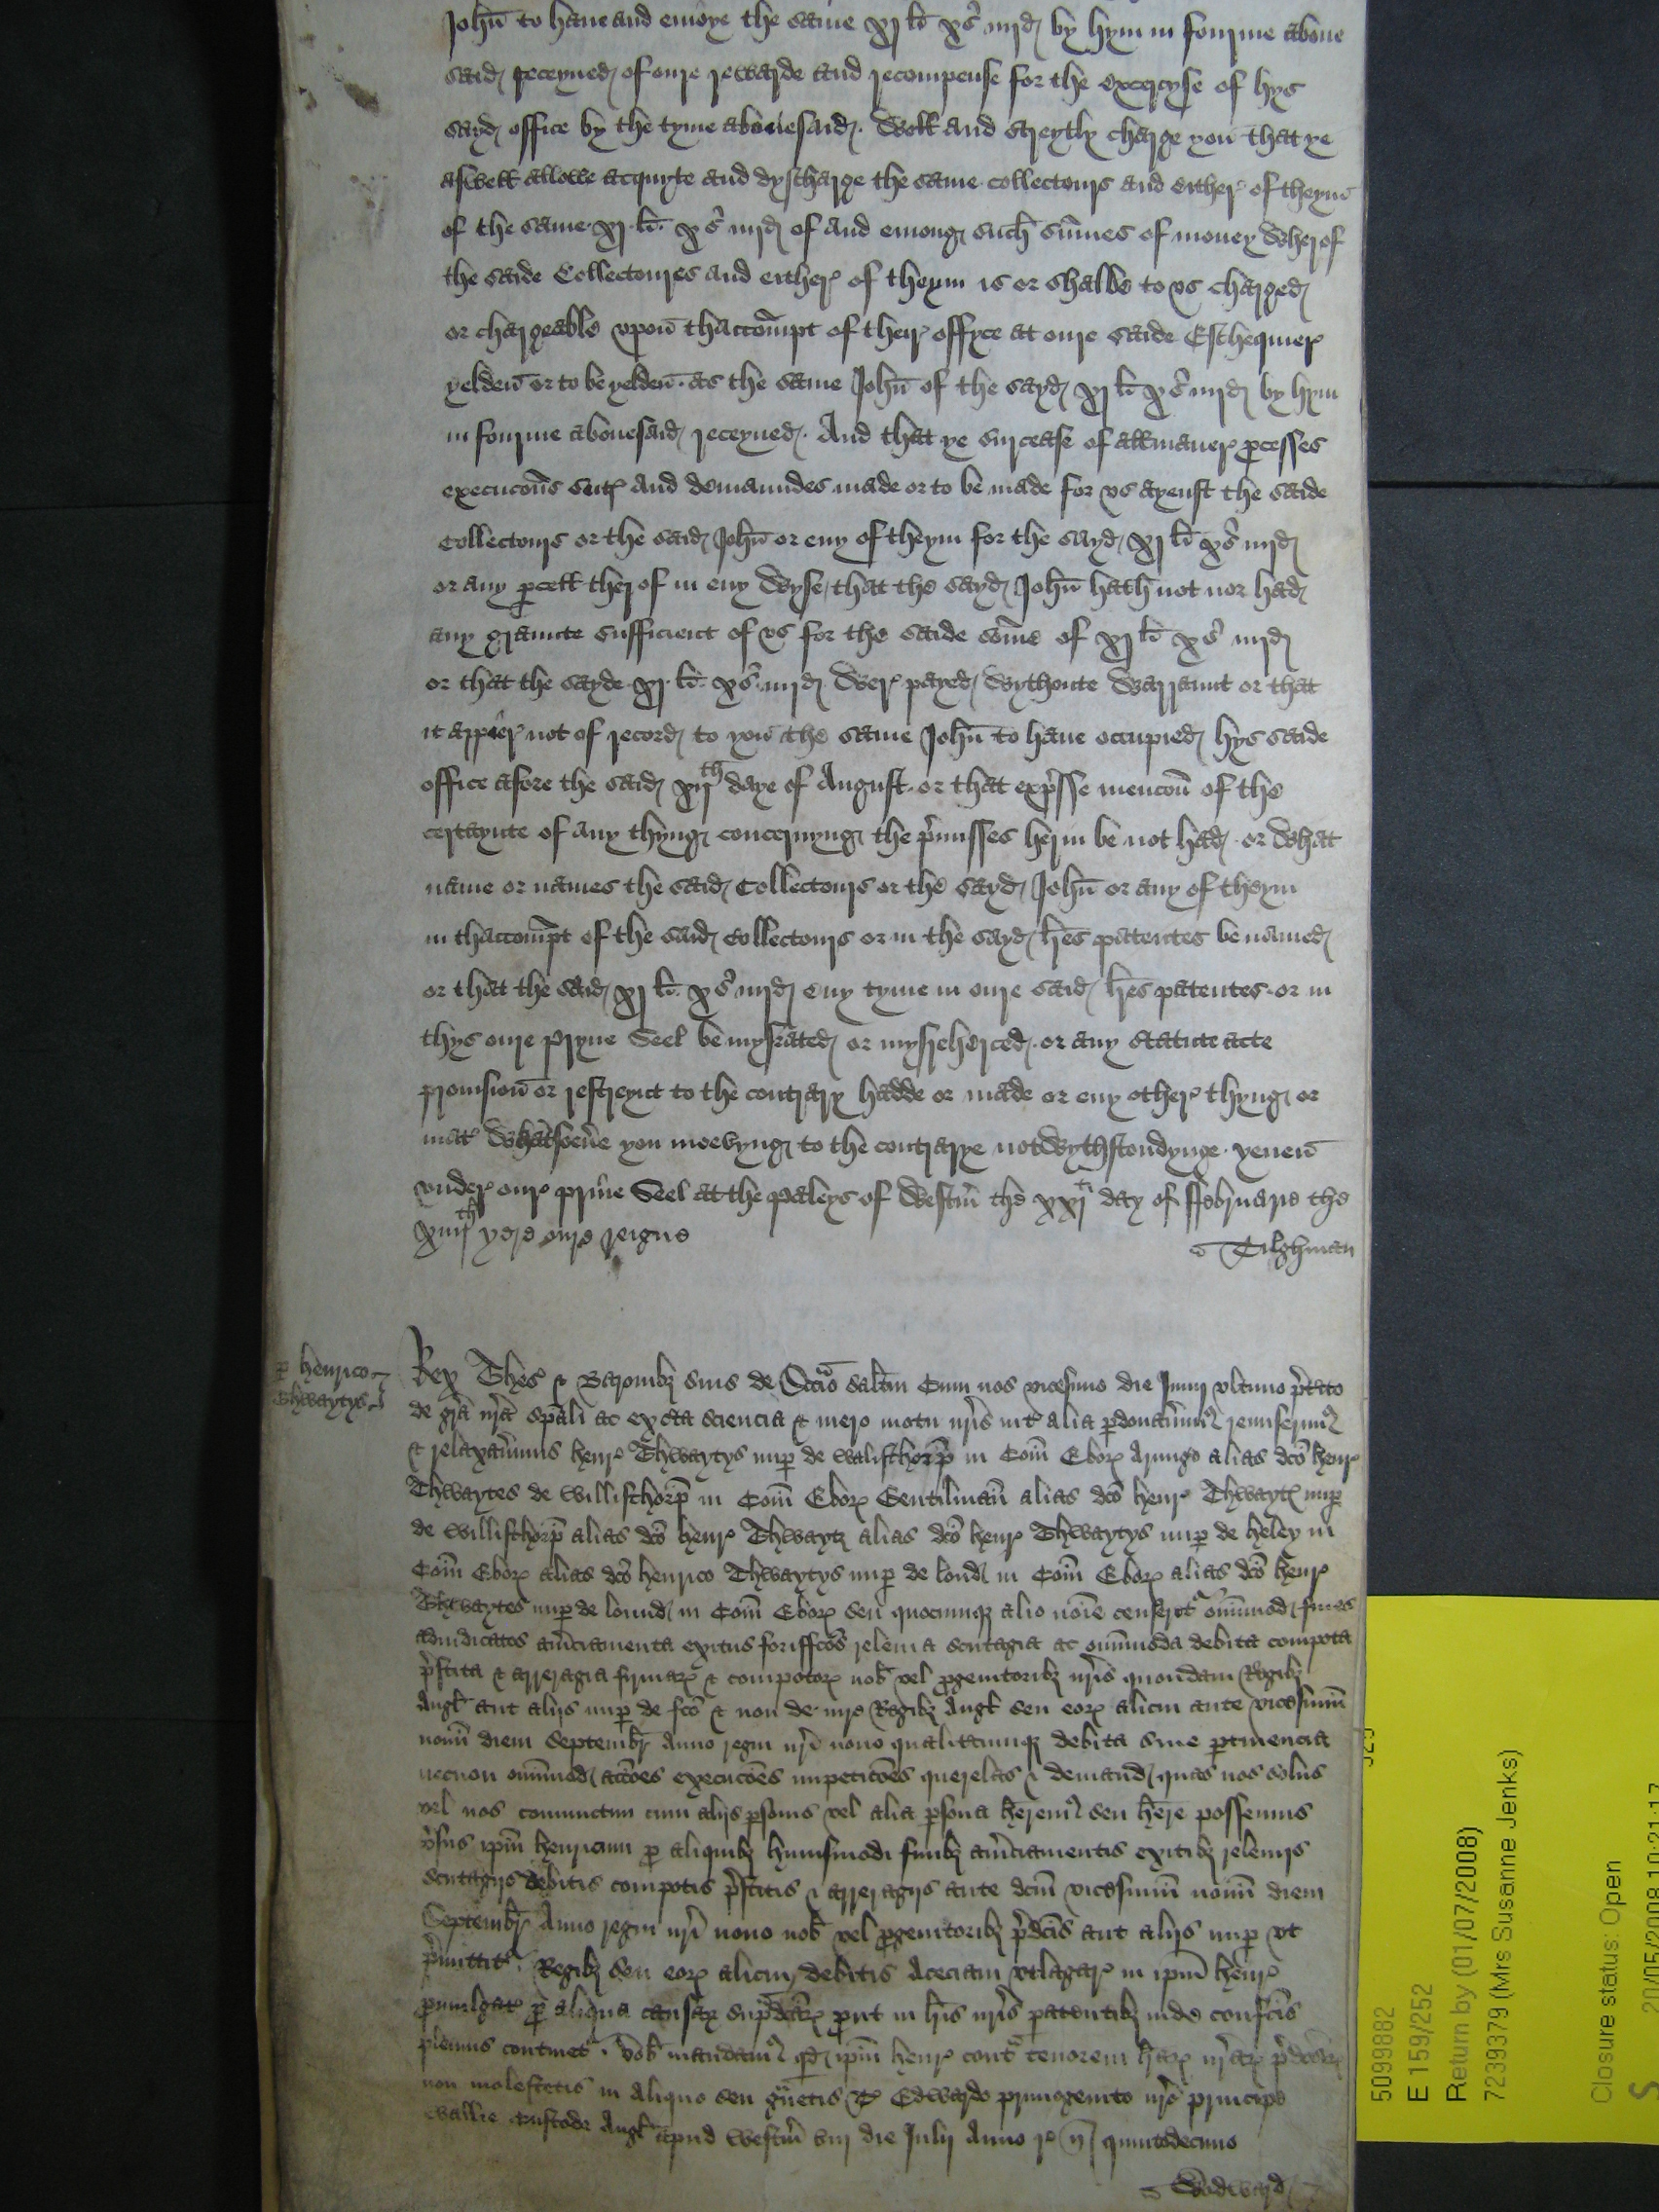 John to haue and enioye the same xj li xs iiijd by hym in fourme aboue
said receyued of oure rewarde and recompense for the excercyse of hys
sayd office by the tyme abouesaid. Woll and streytly charge you that ye
aswell allowe acquyte and dyscharge the same collectours and either of theym
of the same xj li xs iiijd of and emong such summes of money wherof
the saide Collectoures and either of theym is or shalbe to vs charged
or chargeable vpon thaccompt of their offyce at oure saide Eschequier
yelden or to be yelden. as the same John of the sayd xj li xs iiijd by hym
in fourme abouesaid receyued. And that ye surcease of allmaner processes
execucons sutes and demaundes made or to be made for vs ayenst the saide
Collectours or the said John or eny of theym for the sayd xj li xs iiijd
or any parcell therof in eny wyse, that the sayd John hath not nor had
any graunte sufficient of vs for the saide somme of xj li xs iiijd
or that the sayde xj li xs iiijd were payed wythoute warraunt or that
it appier not of record to you the same John to haue occupied hys saide
office afore the said xijth daye of August. or that expresse mencon of the
certaynte of any thyng concernyng the premisses herin be not had. or what
name or names the said Collectours or the sayd John or any of theym
in thaccompt of the said Collectours or in the sayd lres patentes be named
or that the said xj li xs iiijd eny tyme in oure said lres patentes. or in
thys oure pryue Seel be mysrated or mysreherced. or any statute acte
prouision or restreynt to the contrary hadde or made or eny other thyng or
mater whatsoeuer you moevyng to the contrarye notwythstondynge. yeuen
vnder oure priue Seel at the paleys of Westm the xxjti day of ffebruarie the
xiiijth yere oure reigne
Tilghman
p henrico
Thwaytys
Rex Thes & Baronibz suis de Sccio saltm Cum nos vicesimo die Junij vltimo pterito
de gra nra spali ac ex certa sciencia & mero motu nris inter alia pdonauimus remiserimus
& relaxauimus henr Thwaytys nup de Walisthorp in Com Ebor Armigo alias dco henr
Thwaytes de Willisthorp in Com Ebor Gentilman alias dco henr Thwaytes nup
de Willisthorp alias dco henr Thwaytz alias dco henr Thwaytys nup de heley in
Com Ebor alias dco henrico Thwaytys nup de lond in Com Ebor alias dco henr
Thwaytes nup de lound in Com Ebor seu quocumqz alio noie censeret omimod fines
adiudicatos amciamenta exitus forisfcos releuia scutagia ac omimoda debita compota
pstita & arreragia firmar & compotor nob vel pgenitoribz nris quondam Regibz
Angl aut alijs nup de fco & non de iure Regibz Angl seu eor alicui ante vicesimum
nonum diem Septembr Anno regni nri nono qualitercumqz debita siue ptinencia
necnon omimod accoes execucoes impeticoes querelas & demand quas nos solus
vel nos coniunctim cum alijs psonis vel alia psona heremus seu here possemus
vsus ipm henricum p aliquibz huiusmodi finibz amciamentis exitibz releuijs
scutagijs debitis compotis pstitis & arreragijs ante dcm vicesimum nonum diem
Septembr Anno regni nri nono nob vel pgenitoribz pdcis aut alijs nup vt
pmittit Regibz seu eor alicui debitis Aceciam vtlagar in ipm henr
pmulgat p aliqua causar supdcar put in lris nris patentibz inde confcis
plenius continet. vob mandamus qd ipm henr contra tenorem lrar nrar pdcar
non molestetis in aliquo seu grauetis T Edwardo primogenito nro principe
Wallie custode Angl apud Westm viij die Julij Anno r n quintodecimo
Wodward
5099882
E 159/252
Return by (01/07/2008)
7239379 (Mrs Susanne Jenks)
Closure status: Open
20/05/2008 10:21:17